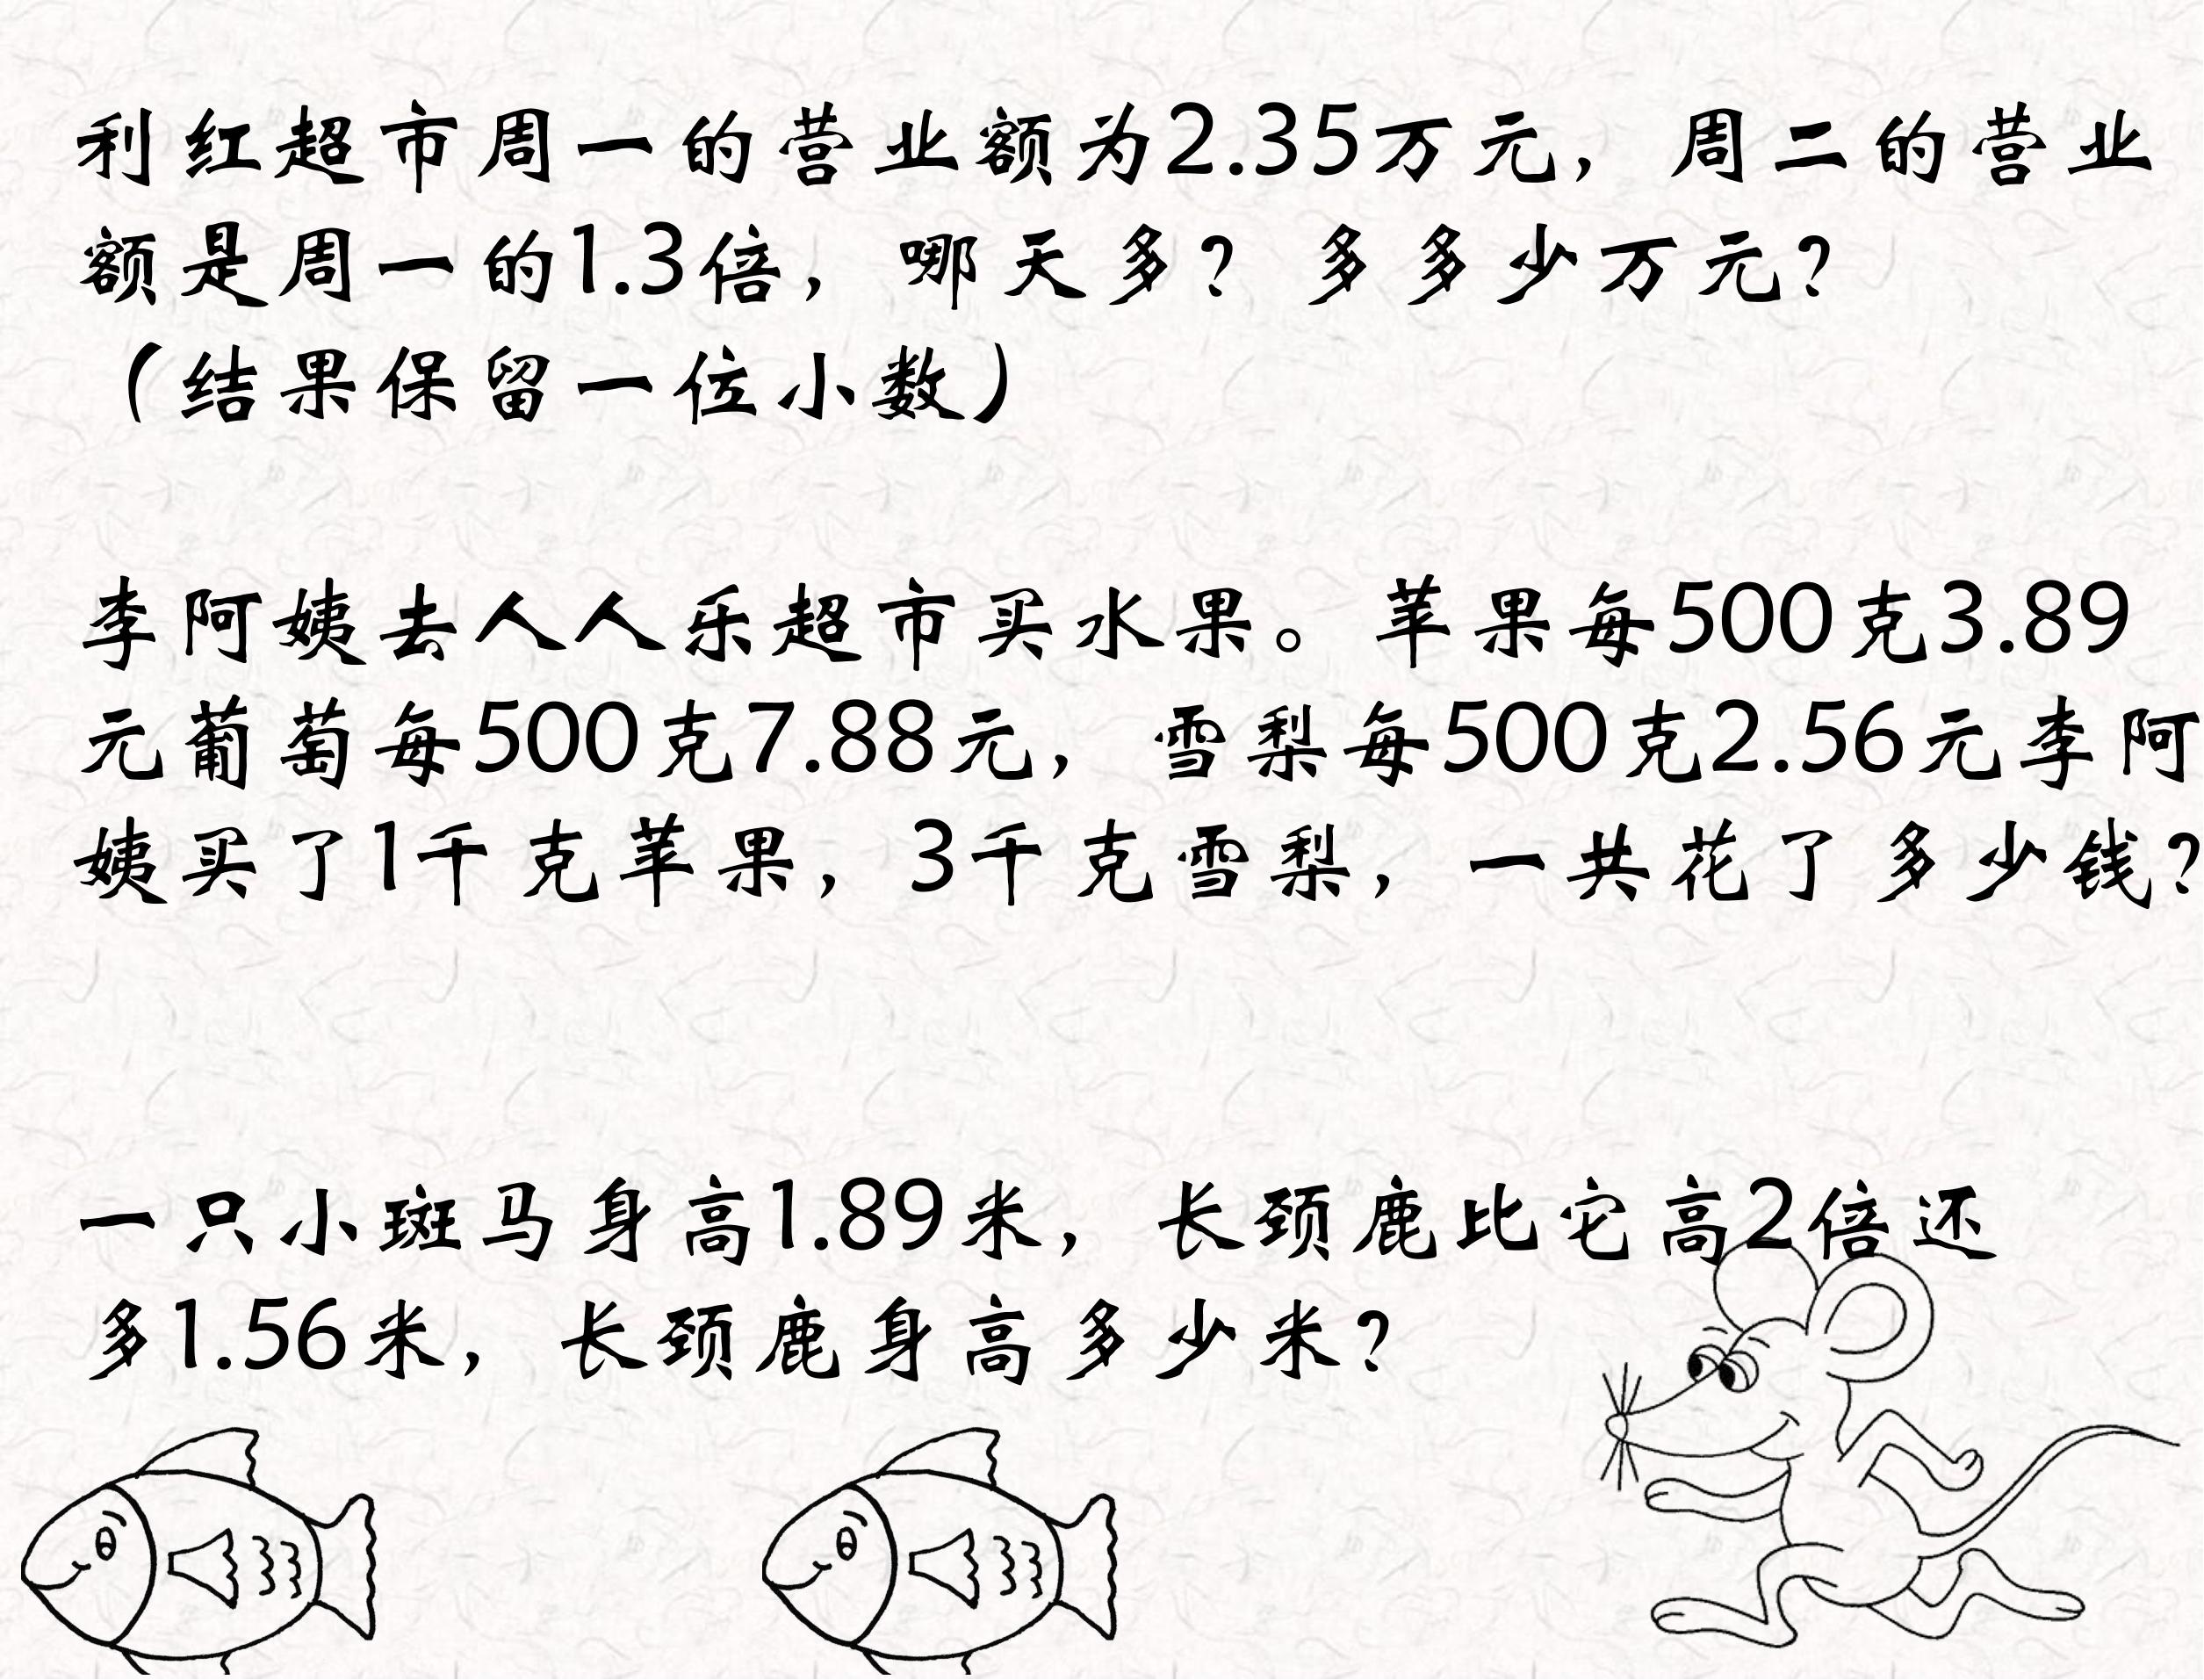 利红超市周一的营业额为2.35万元，周二的营业
额是周一的1.3倍，哪天多？多多少万元？
（结果保留一位小数）
李阿姨去人人乐超市买水果。苹果每500克3.89
元葡萄每500克7.88元，雪梨每500克2.56元李阿
姨买了1千克苹果，3千克雪梨，一共花了多少钱？
一只小斑马身高1.89米，长颈鹿比它高2倍还
多1.56米，长颈鹿身高多少米？